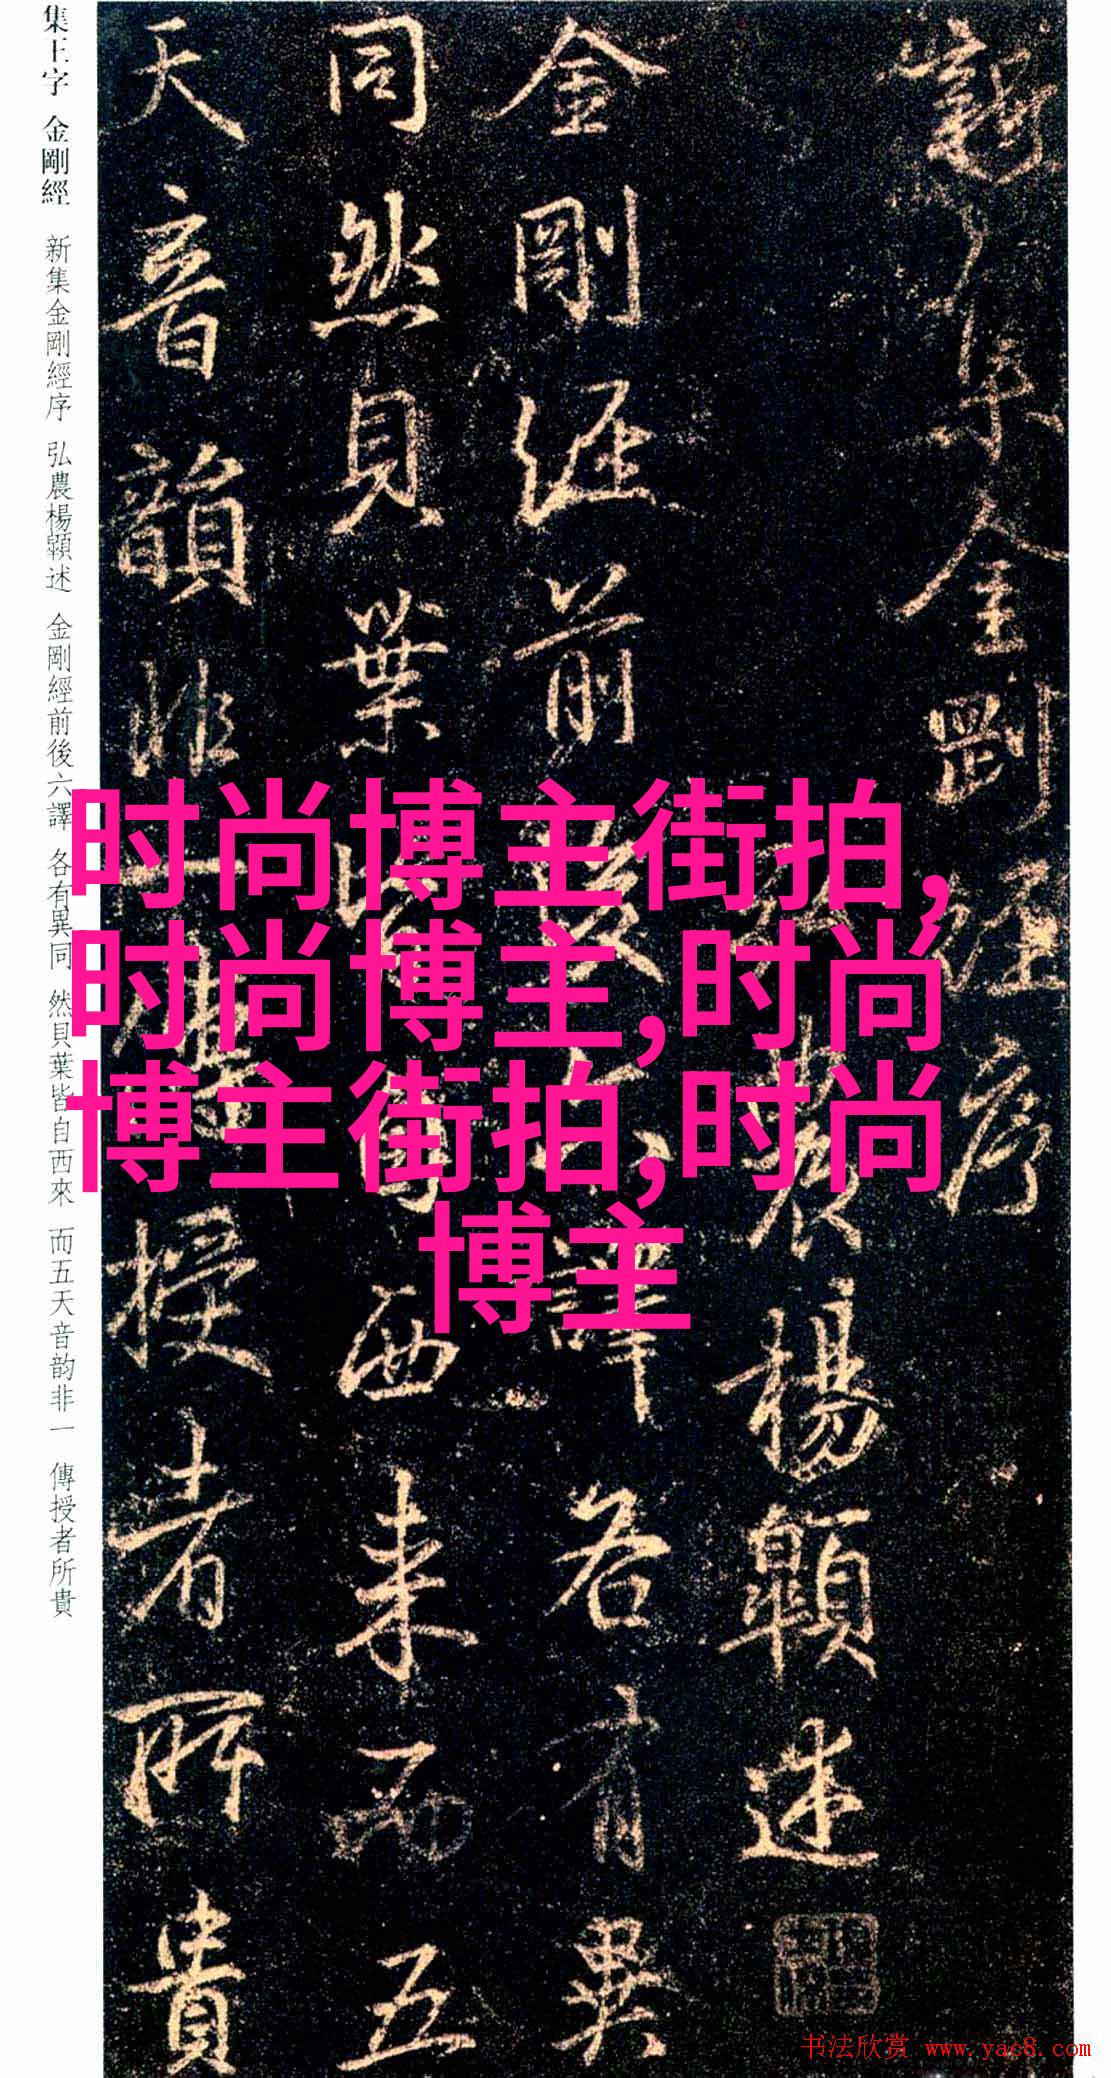 集王字 金剛經 新集金剛經序 弘農楊顗述 金剛經前後六譯 各有異同 然貝葉皆自西來 而五天音韵非一 傳授者所貴
新集金剛經序
農楊顗述
金剛經前後六譯各有異
同然貝葉皆自西来而五
天音韻非一傳授者所貴
时尚博主街拍,
时尚博主,时尚
博主街拍,时尚
博主
书法欣赏 www.yac8.com